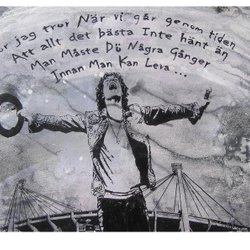 or jag tror När vi går genom tiden
Att allt det bästa Inte hänt än
Man Måste Dö Några Gånger
Innan Man Kan Leva ...